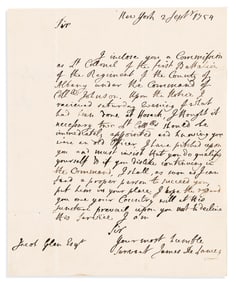 New York 2 Septr 1754
Sir
I inclose you a Commission
as Lt Colonel of the first Battalion
of the Regiment of the County of
Albany under the Command of
Collo Johnson. Upon the Notice I
received saturday Evening of what
had been done at Hosick, I thought it
necessary that all Officers should be
immediately appointed and knowing you
were an old Officer I have pitched upon
you and must insist that you do qualifye
yourself & if you dislike continuing in
the Command, I shall, as soon as I can
find a proper person to succeed you,
put him in your place. I hope the
you owe your Country will at this
Juncture prevail upon you not to decline
this Service. I am
Sir
Your most humble
Servant James De Lancey
Jacob Glen Esqr